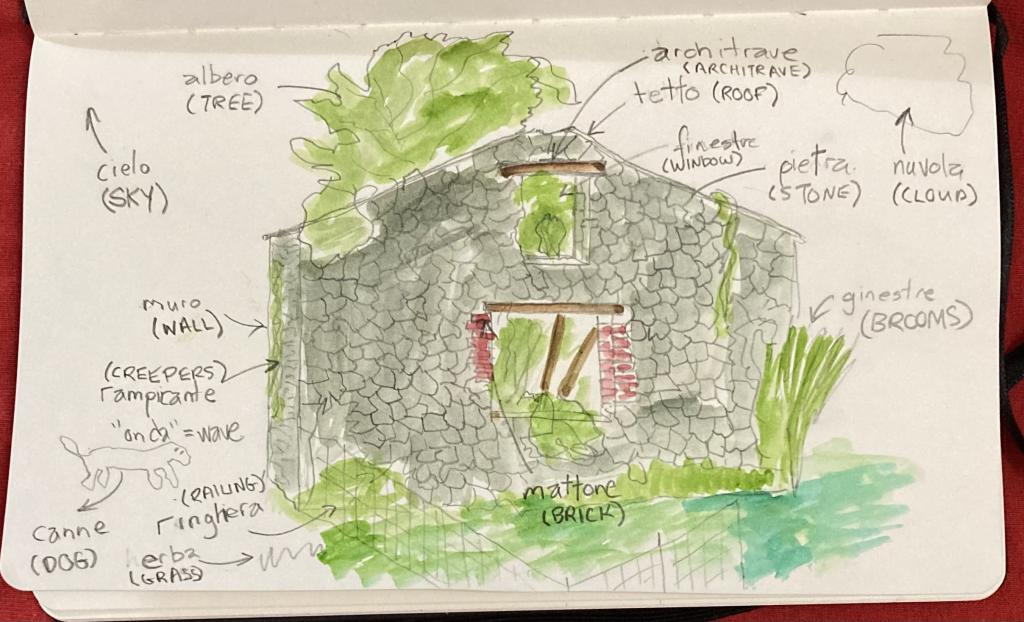 albero
(TREE)
architrave
(ARCHITRAVE)
tetto (ROOF)
cielo
(SKY)
finestre
(WINDOW)
pietra
(STONE)
nuvola
(CLOUD)
muro
(WALL)
ginestre
(BROOMS)
(CREEPERS)
rampicante
"onda" = wave
(RAILING)
ringhera
mattone
(BRICK)
canne
(DOG)
erba
(GRASS)